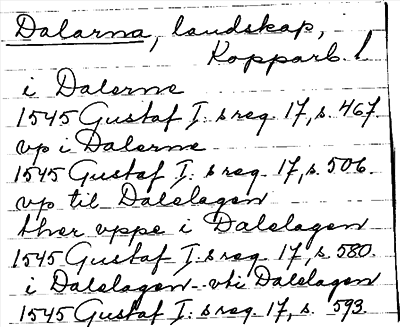 Dalarna, landskap,
Kopparb. l
i Dalerne
1545 Gustaf I:s reg. 17, s. 467.
vp i Dalerne
1545 Gustaf I:s reg. 17, s. 506.
vp til Dalelagen
ther vppe i Dalelagen
1545 Gustaf I:s reg. 17, s. 580.
i Dalelagen - vti Dalelagen
1545 Gustaf I:s reg. 17, s. 593.